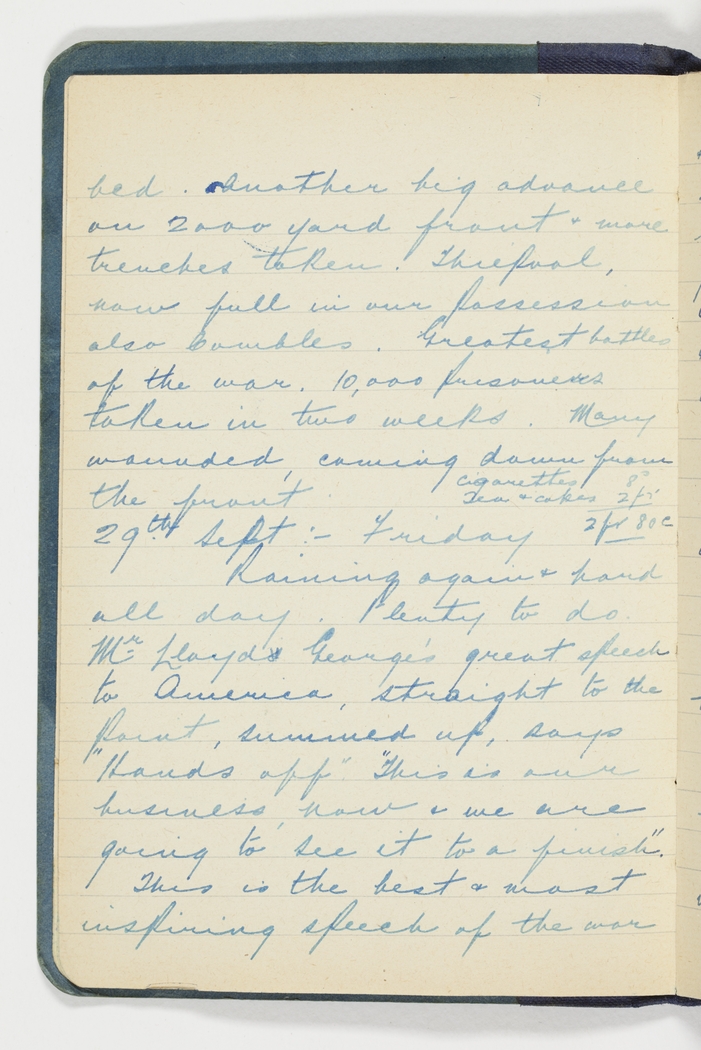 bed. Another big advance
on 2000 yard front & more
trenches taken. Thiepval,
now full in our possession
also Combles. Greatest battles
of the war. 10,000 prisoners
taken in two weeks. Many
wounded, coming down from
the front.
cigarettes 8°
Tea & cakes 2fr
2fr 80c
29th Sept :- Friday
Raining again & hard
all day. Plenty to do.
Mr Lloyds George's great speech
to America, straight to the
point, summed up, says
"Hands off" "This is our
business, now & we are
going to see it to a finish".
This is the best & most
inspiring speech of the war